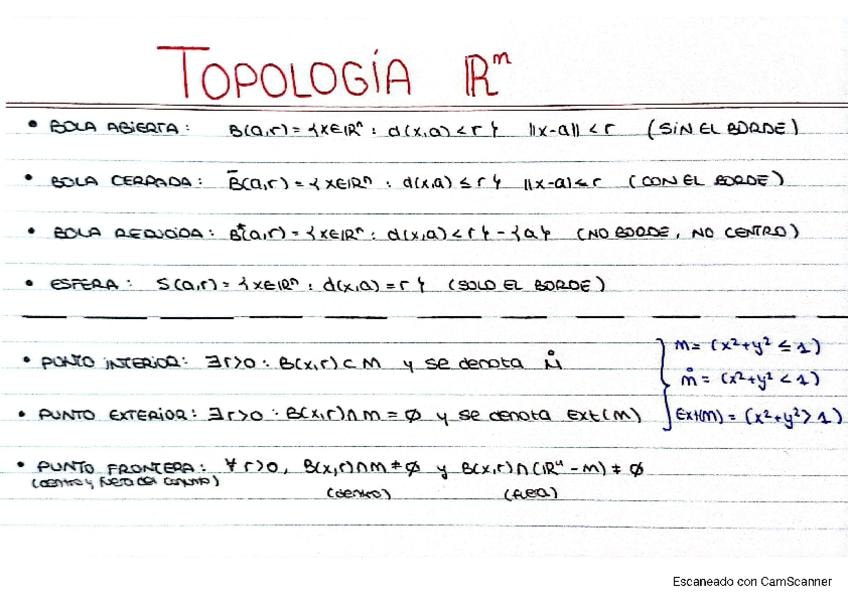 TOPOLOGÍA ℝⁿ
• BOLA ABIERTA: B(a,r) = {x∈ℝⁿ : d(x,a) < r} ||x-a|| < r (SIN EL BORDE)
• BOLA CERRADA: B̄(a,r) = {x∈ℝⁿ : d(x,a) ≤ r} ||x-a|| ≤ r (CON EL BORDE)
• BOLA REDUCIDA: B*(a,r) = {x∈ℝⁿ : d(x,a) < r} - {a} (NO BORDE, NO CENTRO)
• ESFERA: S(a,r) = {x∈ℝⁿ : d(x,a) = r} (SOLO EL BORDE)
• PUNTO INTERIOR: ∃r>0 : B(x,r) ⊂ M y se denota M̊
• PUNTO EXTERIOR: ∃r>0 : B(x,r) ∩ M = ∅ y se denota Ext(M)
M = (x²+y² ≤ 1)
M̊ = (x²+y² < 1)
Ext(M) = (x²+y² > 1)
• PUNTO FRONTERA: ∀r>0, B(x,r) ∩ M ≠ ∅ y B(x,r) ∩ (ℝⁿ - M) ≠ ∅
(dentro y fuera del conjunto) (dentro) (fuera)
Escaneado con CamScanner